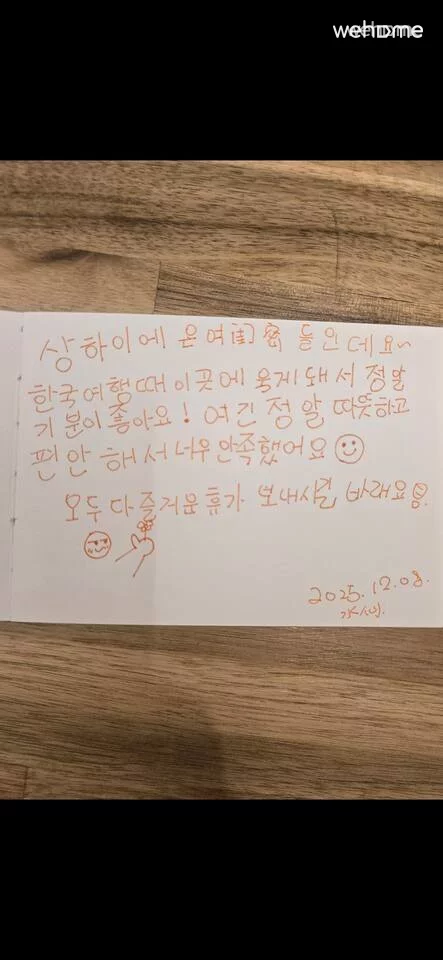 wehome
상하이에 온 여闺密 들인데요~
한국여행때 이곳에 욱게 돼서 정말
기분이 좋아요! 여긴 정말 따뜻하고
편안해서 너무 만족했어요
모두 다 즐거운 휴가 보내시길 바래요
2025.12.08.